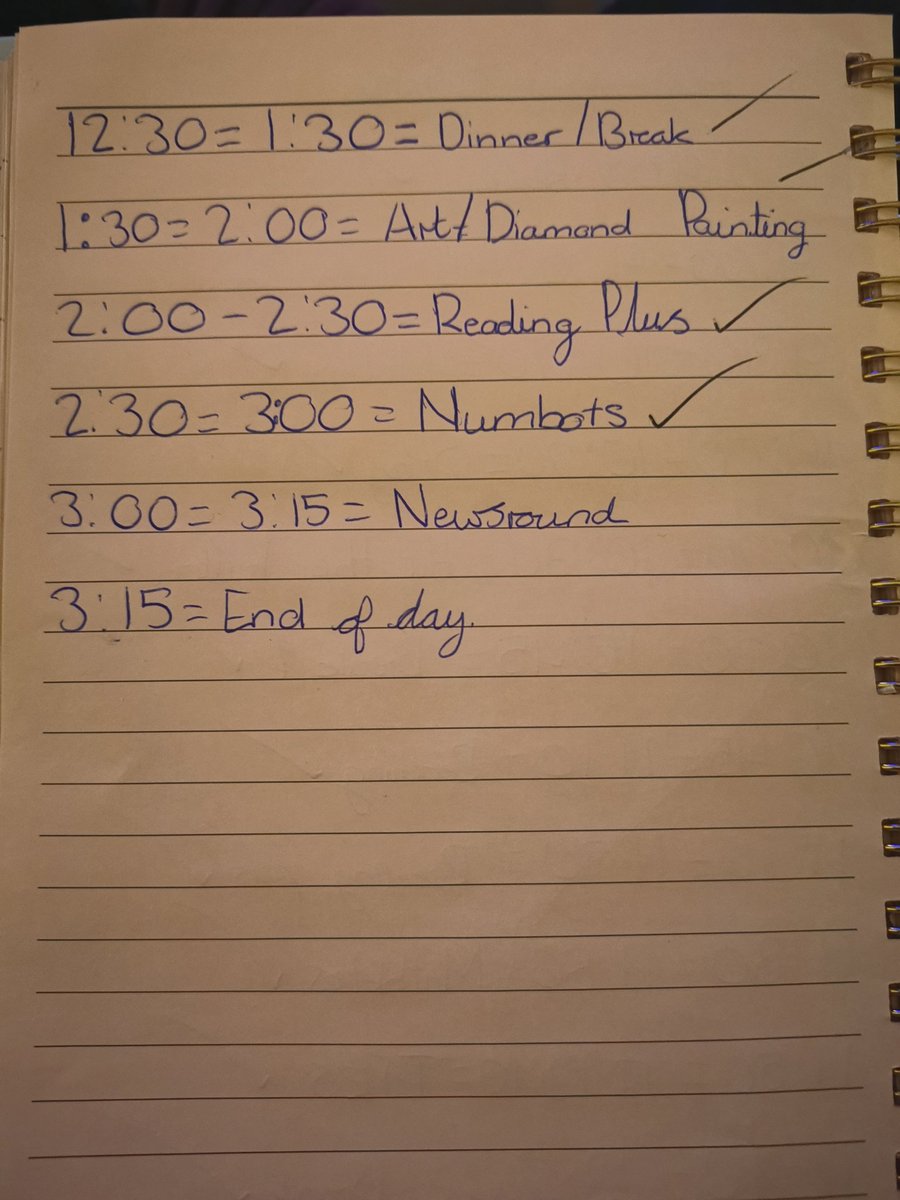 12:30 = 1:30 = Dinner / Break
1:30 = 2:00 = Art / Diamond Painting
2:00 - 2:30 = Reading Plus ✓
2:30 = 3:00 = Numbots ✓
3:00 = 3:15 = Newsround
3:15 = End of day.